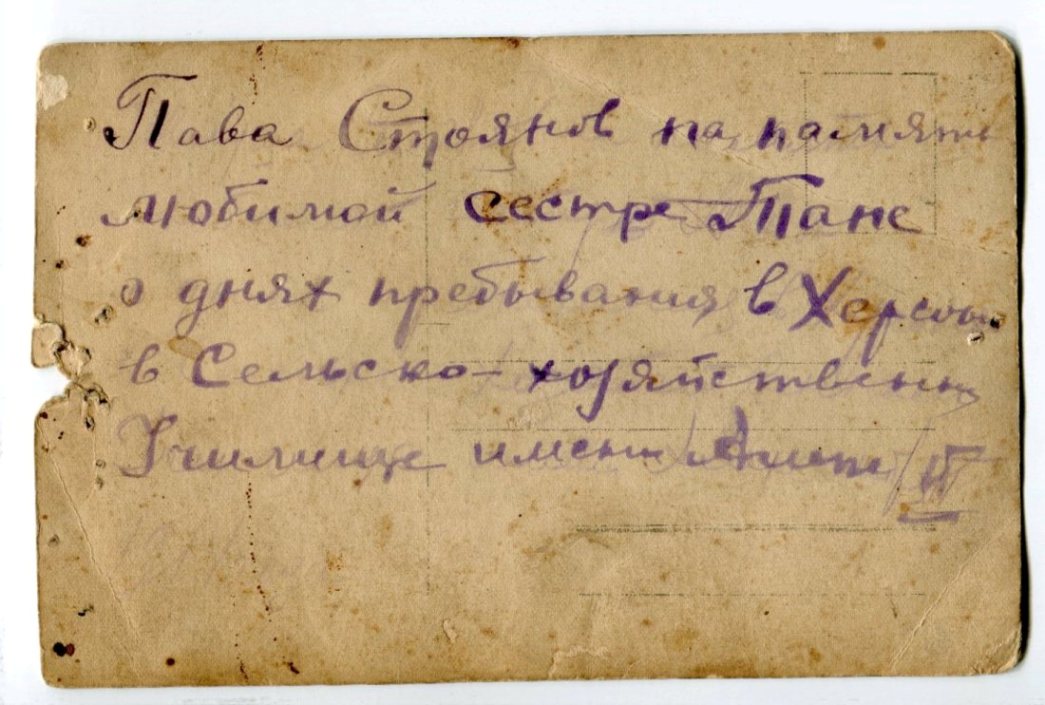 Пава Стоянов на память
любимой сестре Тане
о днях пребывания в Херсоне
в Сельско-хозяйственном
Училище имени III